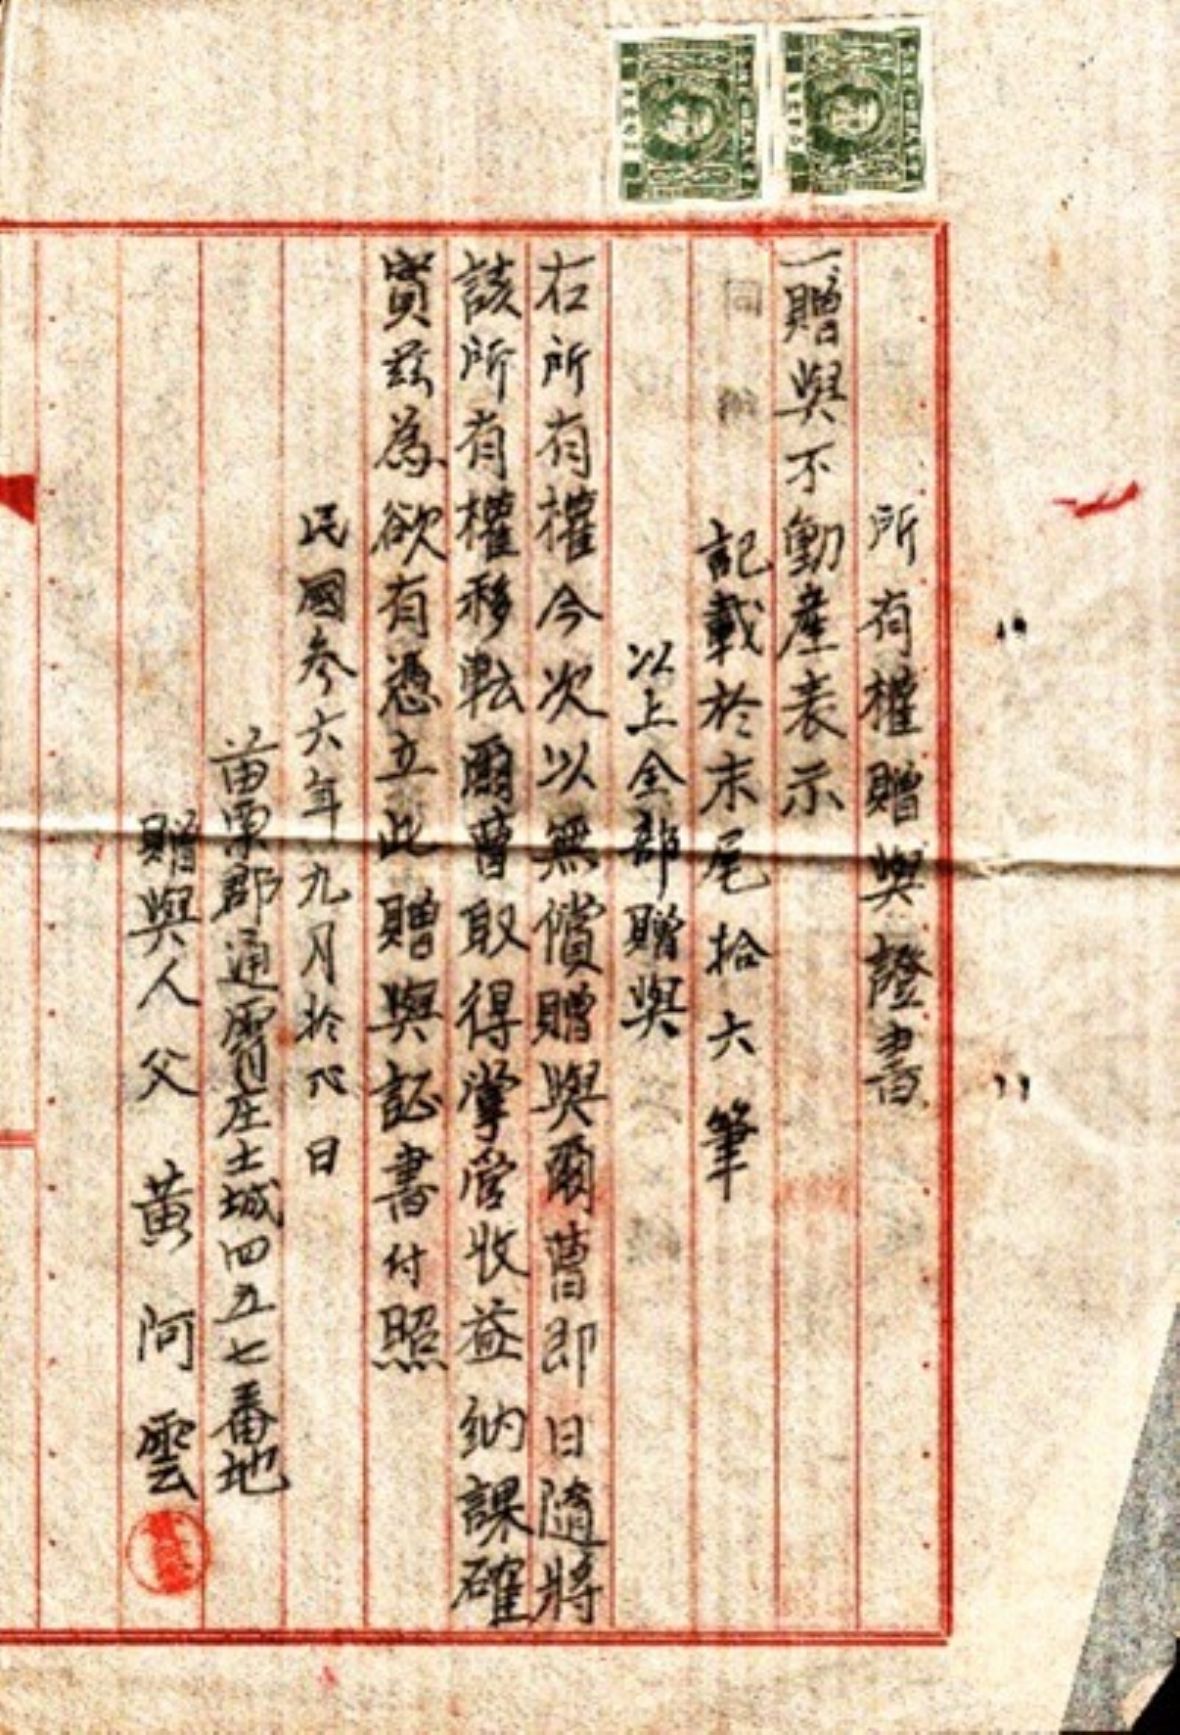 所有權贈與證書
一、贈與不動產表示
記載於末尾拾六筆
以上全部贈與
右所有權今次以無償贈與爾曹即日隨將
該所有權移転爾曹取得掌管收益納課確
實茲為欲有憑立此贈與証書付照
民國参六年九月 日
苗栗郡通霄庄土城四五七番地
贈與人父 黃阿雲